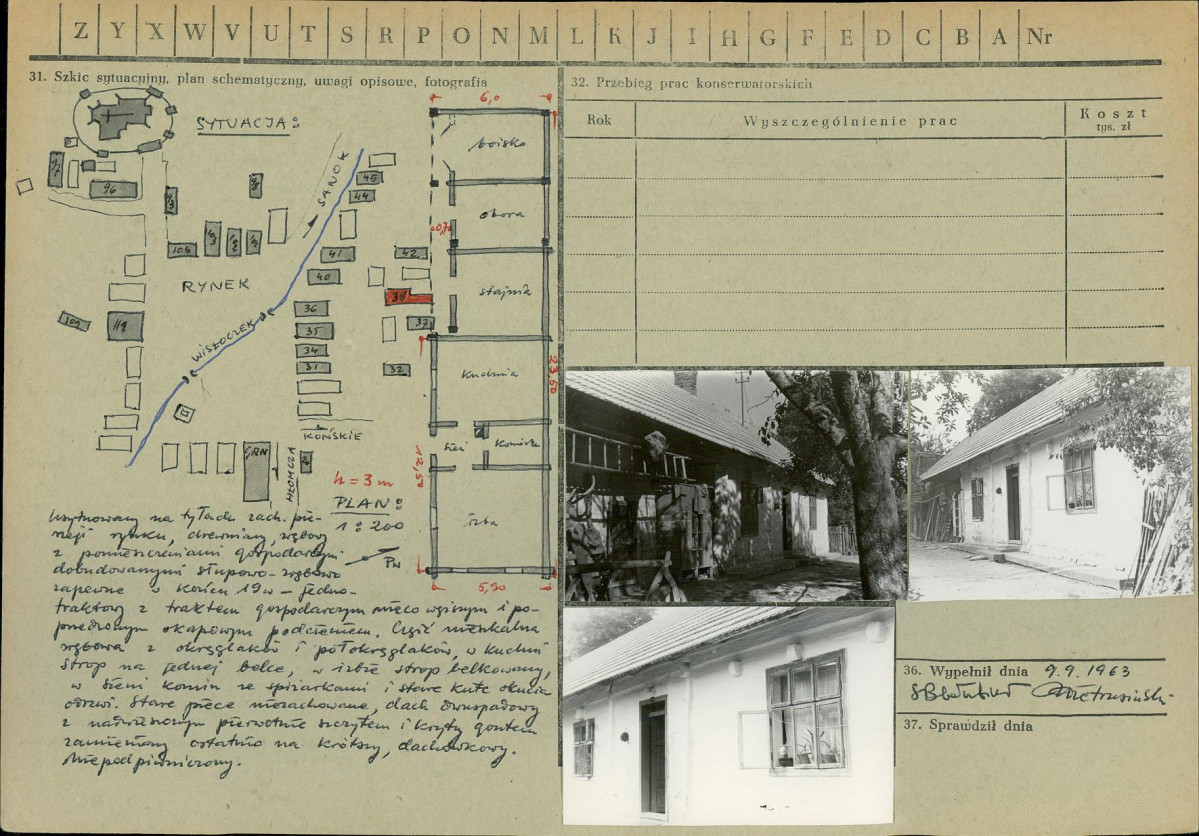 Z Y X W V U T S R P O N M L K J I H G F E D C B A Nr
31. Szkic sytuacyjny, plan schematyczny, uwagi opisowe, fotografia
SYTUACJA:
96
104
98
SANOK
45
44
41
42
40
38
37
36
35
34
31
32
RYNEK
WISZOCZEK
KOŃSKIE
GRN
HŁOMCZA
6,0
boisko
obora
0,70
stajnia
kuchnia
23,50
sień
komórka
12,50
izba
5,90
h = 3 m
PLAN:
1:200
Pn
Usytuowany na tyłach zach. pie-
rzeji rynku, drewniany, zrębowy
z pomieszczeniami gospodarczymi
dobudowanymi słupowo-zrębowo
zapewne w końcu 19 w – jedno-
traktowy z traktem gospodarczym nieco węższym i po-
przedzonym okapowym podcieniem. Część mieszkalna
zrębowa z okrąglaków i półokrąglaków, w kuchni
strop na jednej belce, w izbie strop belkowany,
w sieni komin ze spiżarkami i stare kute okucia
drzwi. Stare piece niezachowane, dach dwuspadowy
z nadwieszonym pierwotnie szczytem i kryty gontem
zamieniony ostatnio na krótszy, dachówkowy.
Niepodpiwniczony.
32. Przebieg prac konserwatorskich
Rok
Wyszczególnienie prac
Koszt
tys. zł
36. Wypełnił dnia 9.9.1963
37. Sprawdził dnia